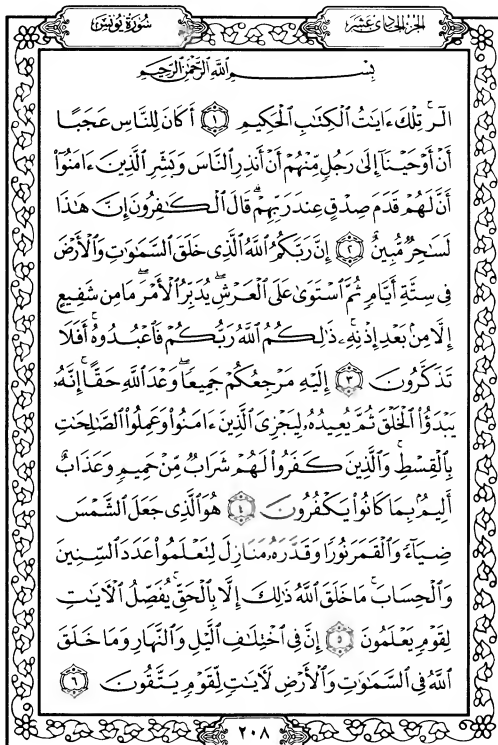 الجزء الحادي عشر
سورة يونس
بِسْمِ ٱللَّهِ ٱلرَّحْمَٰنِ ٱلرَّحِيمِ
الٓرۚ تِلْكَ ءَايَٰتُ ٱلْكِتَٰبِ ٱلْحَكِيمِ ١ أَكَانَ لِلنَّاسِ عَجَبًا
أَنْ أَوْحَيْنَآ إِلَىٰ رَجُلٍ مِّنْهُمْ أَنْ أَنذِرِ ٱلنَّاسَ وَبَشِّرِ ٱلَّذِينَ ءَامَنُوٓا۟
أَنَّ لَهُمْ قَدَمَ صِدْقٍ عِندَ رَبِّهِمْۗ قَالَ ٱلْكَٰفِرُونَ إِنَّ هَٰذَا
لَسَٰحِرٌ مُّبِينٌ ٢ إِنَّ رَبَّكُمُ ٱللَّهُ ٱلَّذِى خَلَقَ ٱلسَّمَٰوَٰتِ وَٱلْأَرْضَ
فِى سِتَّةِ أَيَّامٍ ثُمَّ ٱسْتَوَىٰ عَلَى ٱلْعَرْشِۖ يُدَبِّرُ ٱلْأَمْرَۖ مَا مِن شَفِيعٍ
إِلَّا مِنۢ بَعْدِ إِذْنِهِۦۚ ذَٰلِكُمُ ٱللَّهُ رَبُّكُمْ فَٱعْبُدُوهُۚ أَفَلَا
تَذَكَّرُونَ ٣ إِلَيْهِ مَرْجِعُكُمْ جَمِيعًاۖ وَعْدَ ٱللَّهِ حَقًّاۚ إِنَّهُۥ
يَبْدَؤُا۟ ٱلْخَلْقَ ثُمَّ يُعِيدُهُۥ لِيَجْزِىَ ٱلَّذِينَ ءَامَنُوا۟ وَعَمِلُوا۟ ٱلصَّٰلِحَٰتِ
بِٱلْقِسْطِۚ وَٱلَّذِينَ كَفَرُوا۟ لَهُمْ شَرَابٌ مِّنْ حَمِيمٍ وَعَذَابٌ
أَلِيمٌۢ بِمَا كَانُوا۟ يَكْفُرُونَ ٤ هُوَ ٱلَّذِى جَعَلَ ٱلشَّمْسَ
ضِيَآءً وَٱلْقَمَرَ نُورًا وَقَدَّرَهُۥ مَنَازِلَ لِتَعْلَمُوا۟ عَدَدَ ٱلسِّنِينَ
وَٱلْحِسَابَۚ مَا خَلَقَ ٱللَّهُ ذَٰلِكَ إِلَّا بِٱلْحَقِّۚ يُفَصِّلُ ٱلْءَايَٰتِ
لِقَوْمٍ يَعْلَمُونَ ٥ إِنَّ فِى ٱخْتِلَٰفِ ٱلَّيْلِ وَٱلنَّهَارِ وَمَا خَلَقَ
ٱللَّهُ فِى ٱلسَّمَٰوَٰتِ وَٱلْأَرْضِ لَءَايَٰتٍ لِّقَوْمٍ يَتَّقُونَ ٦
٢٠٨